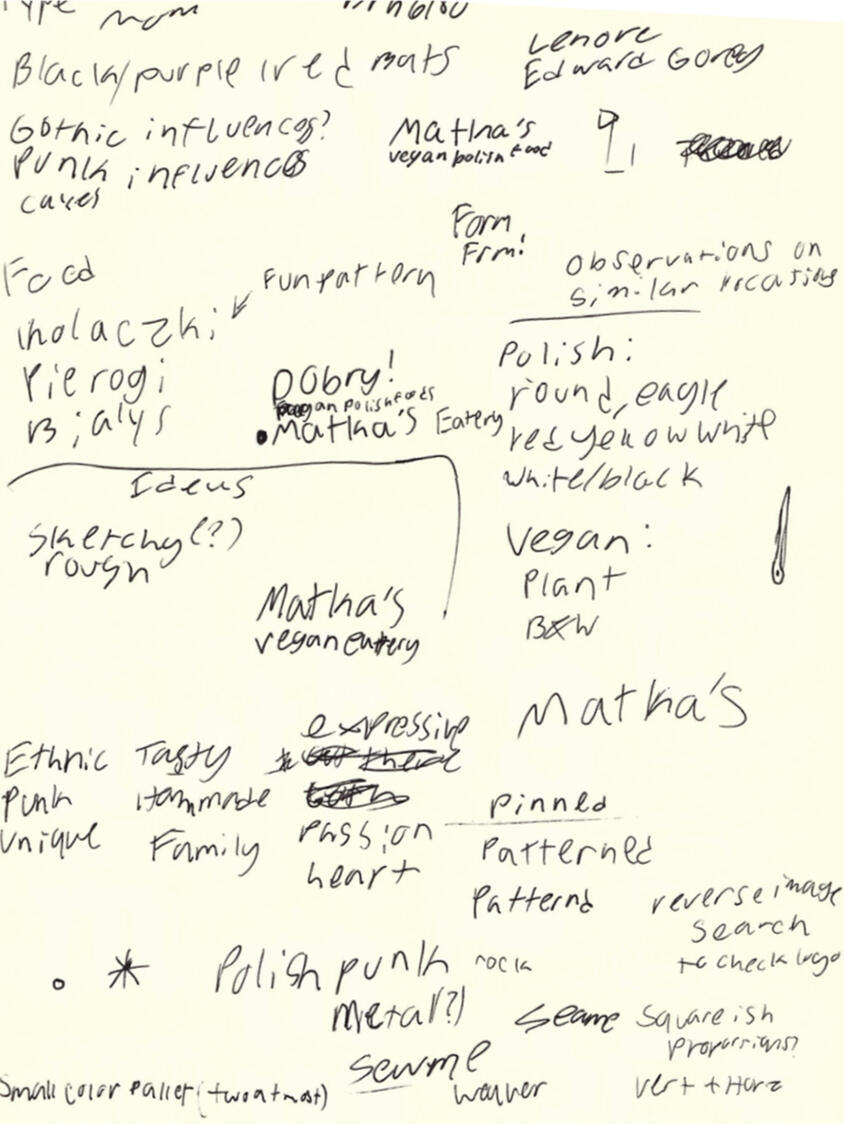 Type mom
Black/purple/red mats
Lenore
Edward Gorey
Gothic influences?
Punk influences
Matka's
vegan polish food
Form
Frm!
Food
Fun pattern
observations on
similar locations
kolaczki
Pierogi
Bialys
Dobry!
vegan polish foods
Matka's Eatery
Polish:
round, eagle
red yellow white
white/black
Ideas
Skerchy(?)
rough
Vegan:
Plant
B&W
Matka's
vegan eatery
Matka's
Ethnic Tasty
expressive
Punk Hommade
Unique Family
passion
heart
pinned
Patterned
Patternd
reverse image
search
to check logo
* Polish punk rock
metal(?)
seame
Squareish
Proporsions?
sewme
weaver
vert + Horz
Small color pallet (two at most)